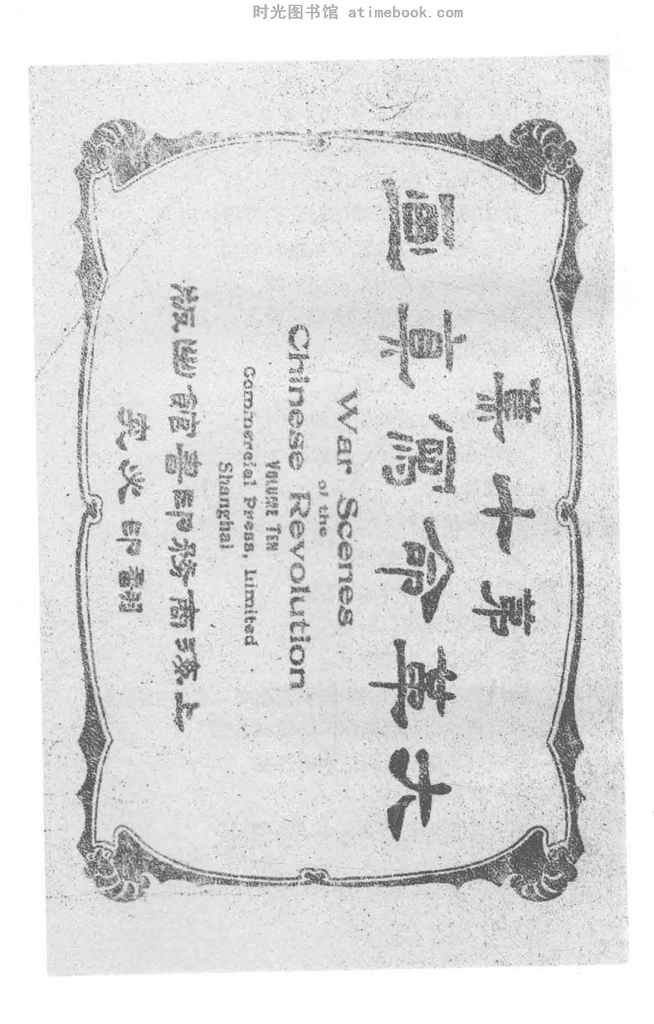 时光图书馆 atimebook.com
第十集
大革命寫真畫
War Scenes
of the
Chinese Revolution
VOLUME TEN
Commercial Press, Limited
Shanghai
上海商務印書館出版
翻印必究